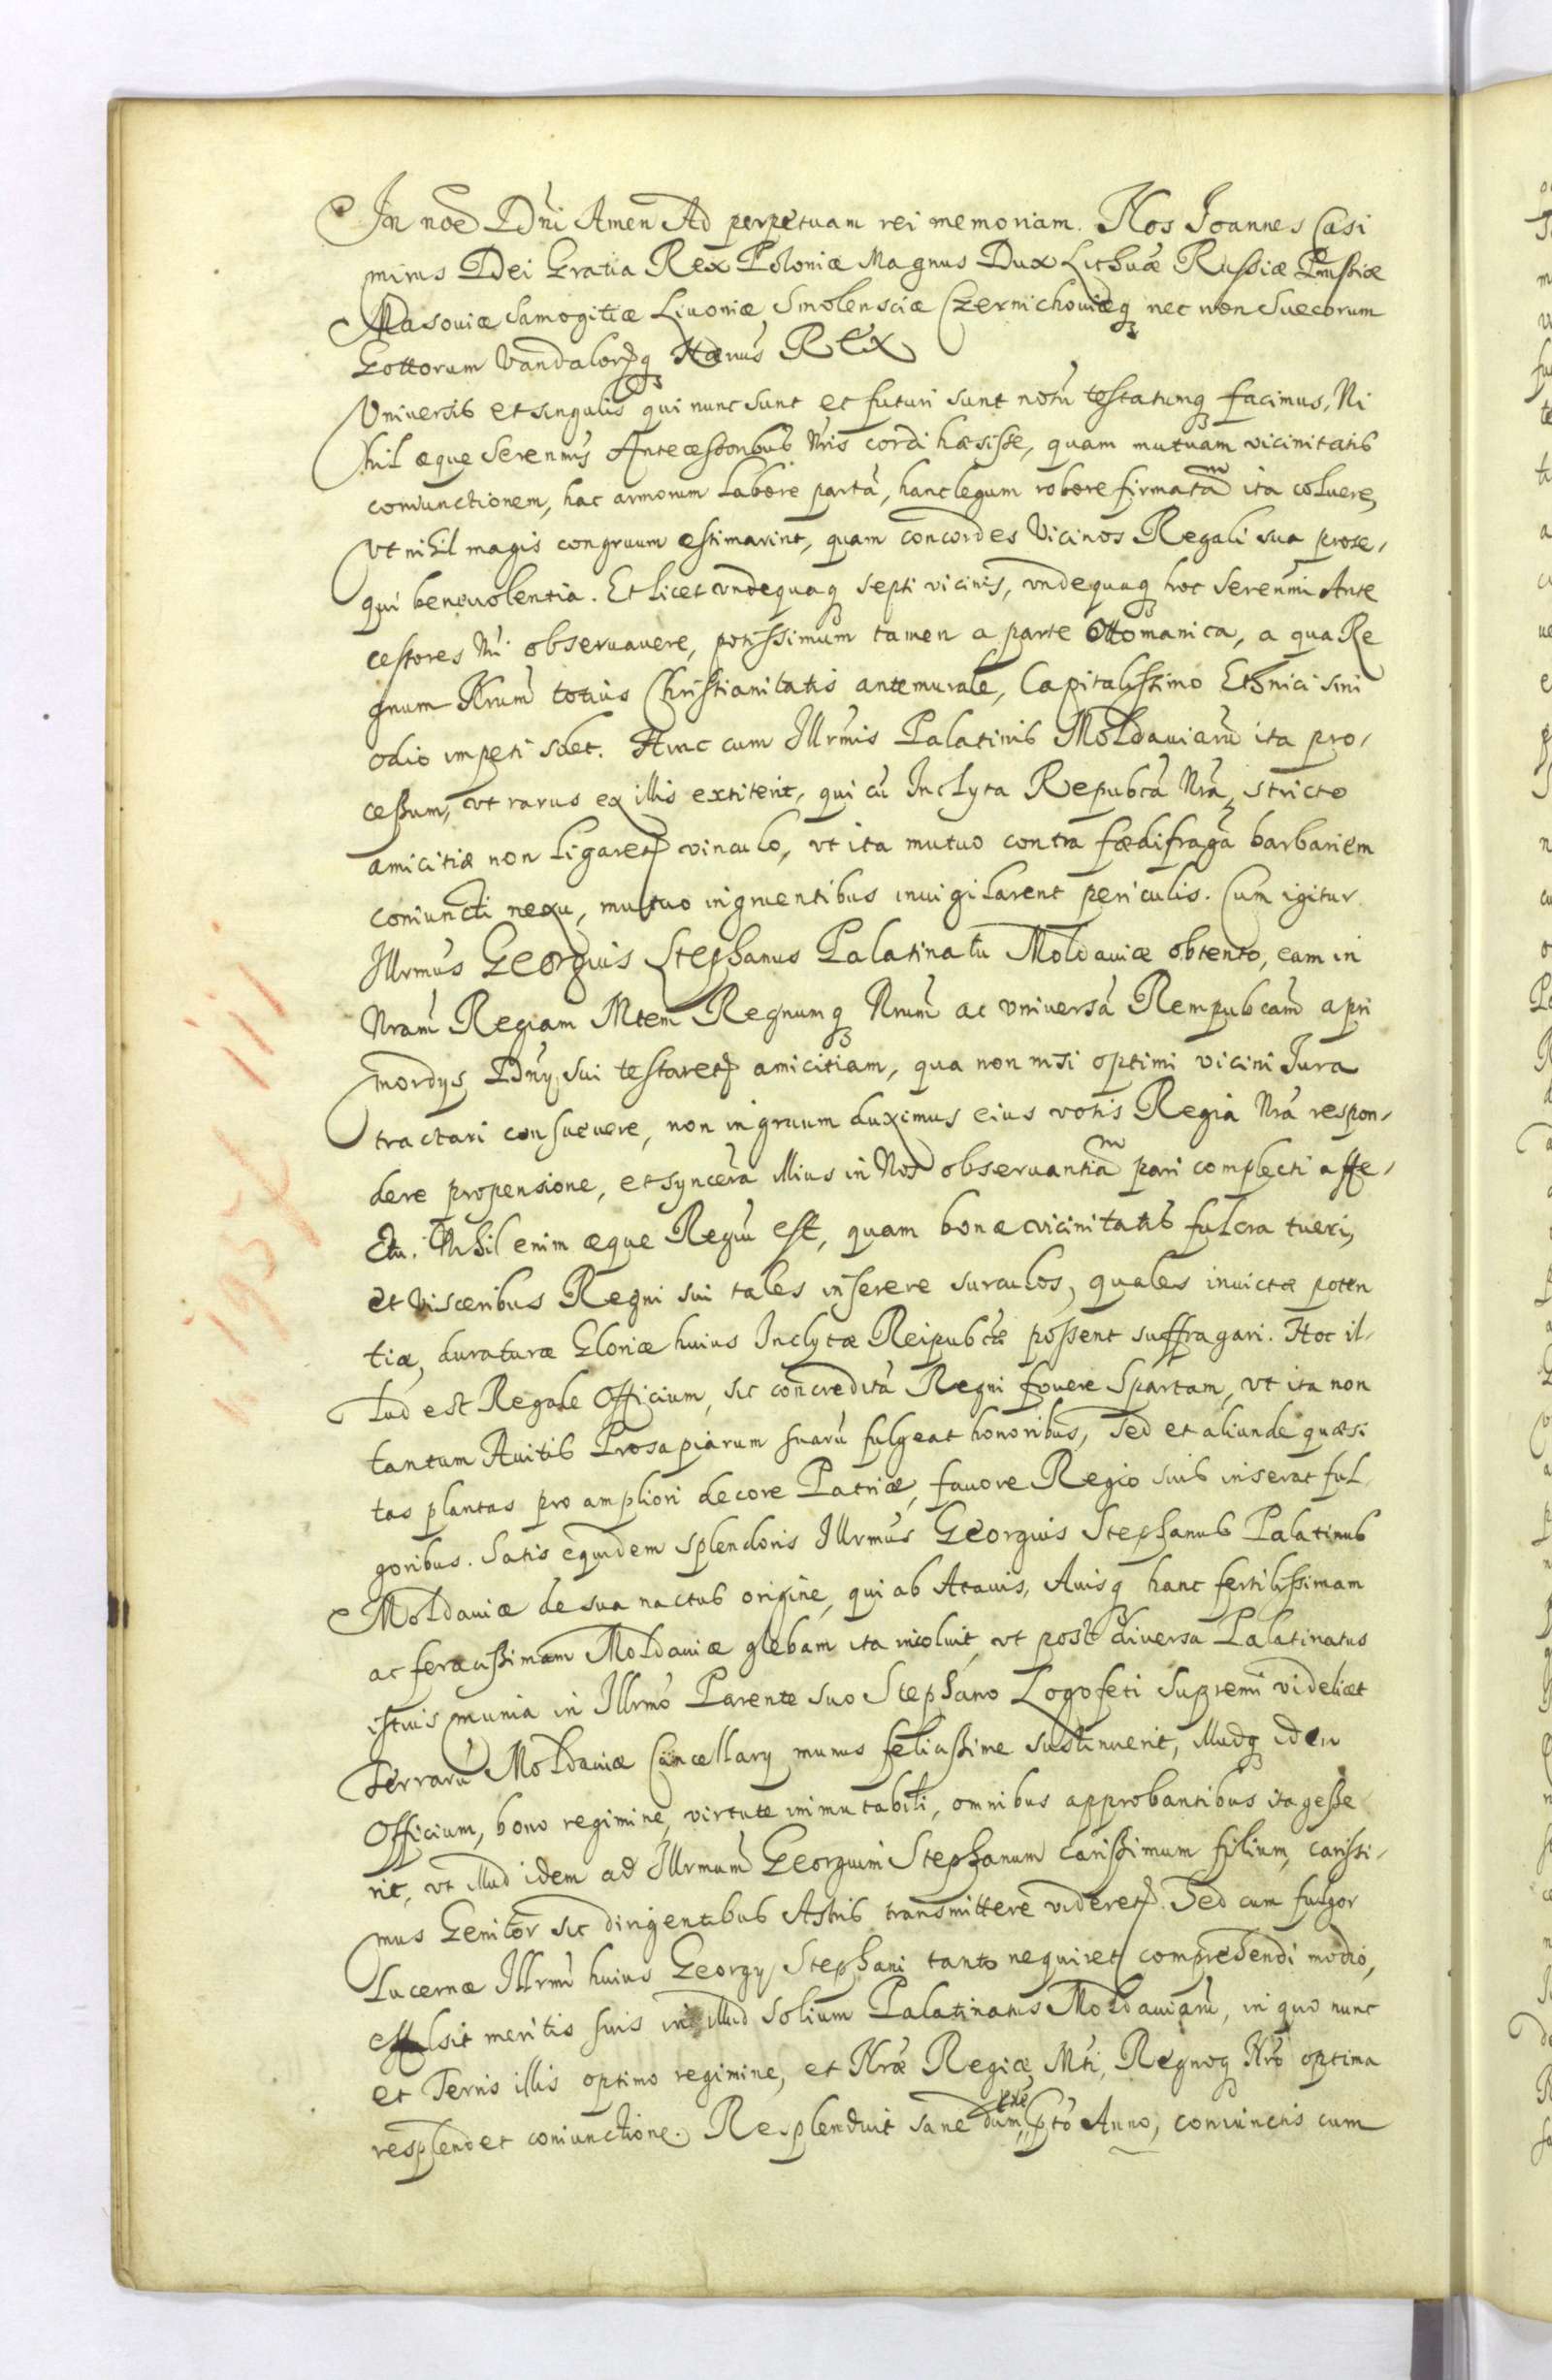 In noe Dni Amen Ad perpetuam rei memoriam. Nos Joannes Casi
mirus Dei Gratia Rex Poloniæ Magnus Dux Lithuæ Russiæ Prussiæ
Masouiæ Samogitiæ Liuoniæ Smolensciæ Czernichouiæq nec non Suecorum
Gottorum Vandalorq Hærus REX
Vniversis et singulis qui nunc sunt et futuri sunt notu testatumq facimus, Ni
hil æque Serenmis Antecessoribus Nris cordi hæsisse, quam mutuam vicinitatis
coniunctionem, hac armorum labore partã, hanc legum robore firmatam ita coluere,
vt nihil magis congruum estimarint, quam concordes Vicinos Regali sua prose,
qui beneuolentia. Et licet vndequaq septi vicinis, vndequaq hoc Serenmi Ante
cessores Nri obseruauere, potissimum tamen a parte Ottomanica, a qua Re
gnum Nrum totius Christianitatis antemurale, Capitalissimo Ethnici sini
odio impeti solet. Hinc cum Illrmis Palatinis Moldauiarũ ita pro,
cessum, vt rarus ex illis extiterit, qui cũ Inclyta Repubca Nra, stricto
amicitiæ non ligaret vinculo, vt ita mutuo contra fœdifragã barbariem
coniuncti nexu, mutuo ingruentibus inuigilarent periculis. Cum igitur
Illrmus Georgius Stephanus Palatinatu Moldauiæ obtento, eam in
Nram Regiam Mtem Regnumq Nrum ac vniversã Rempubcam a pri
mordys Dny sui testaret amicitiam, qua non nisi optimi vicini Jura
tractari consueuere, non ingruum duximus eius votis Regia Nra respon,
dere propensione, et syncera illius in Nos obseruantiam pari complecti affe,
ctu. Nihil enim æque Regiũ est, quam bonæ vicinitatis fulcra tueri,
et visceribus Regni sui tales inserere surculos, quales inuictæ poten
tiæ, duraturæ Gloriæ huius Inclytæ Reipubcæ possent suffragari. Hoc il,
lud est Regale Officium, sic concredità Regni fouere Spartam, vt ita non
tantum Auitis Prosapiarum suarũ fulgeat honoribus, sed et aliunde quæsi
tas plantas pro ampliori decore Patriæ, fauore Regio suis inserat ful
goribus. Satis equidem splendoris Illrmus Georgius Stephanus Palatinus
Moldauiæ de sua nactus origine, qui ab Atauis, Auisq hanc fertilissimam
ac feracissimam Moldauiæ glebam ita incoluit, vt post diversa Palatinatus
istius munia in Illrmo Parente suo Stephano Logofeti Supremi videlicet
Terrarũ Moldauiæ Cancellary munus felicissime sustinuerit, illudq idem
Officium, bono regimine, virtute inimutabili, omnibus approbantibus ita gesse
rit, vt illud idem ad Illrmum Georgium Stephanum carissimum filium, carissi,
mus Genitor sic dirigentibus Astris transmittere videret. Sed cum fulgor
Lucernæ Illrmi huius Georgy Stephani tanto nequiret comprehendi modio,
effulsit meritis suis in illud Solium Palatinatus Moldauiarũ, in quo nunc
et Terris illis optimo regimine, et Nræ Regiæ Mti, Regnoq Nro optima
resplendet coniunctione. Resplenduit sane dum pto Anno, coniunctis cum